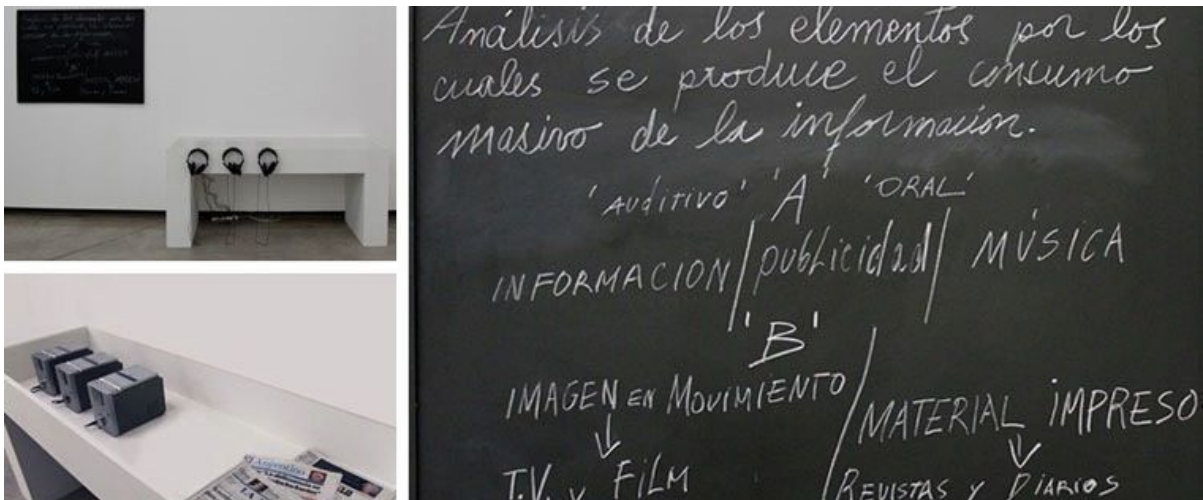 Análisis de los elementos por los
cuales se produce el consumo
masivo de la información.
'Auditivo' 'A' 'ORAL'
INFORMACION / publicidad / MÚSICA
'B'
IMAGEN EN MOVIMIENTO / MATERIAL IMPRESO
T.V. y FILM
REVISTAS Y DIARIOS
Argentino